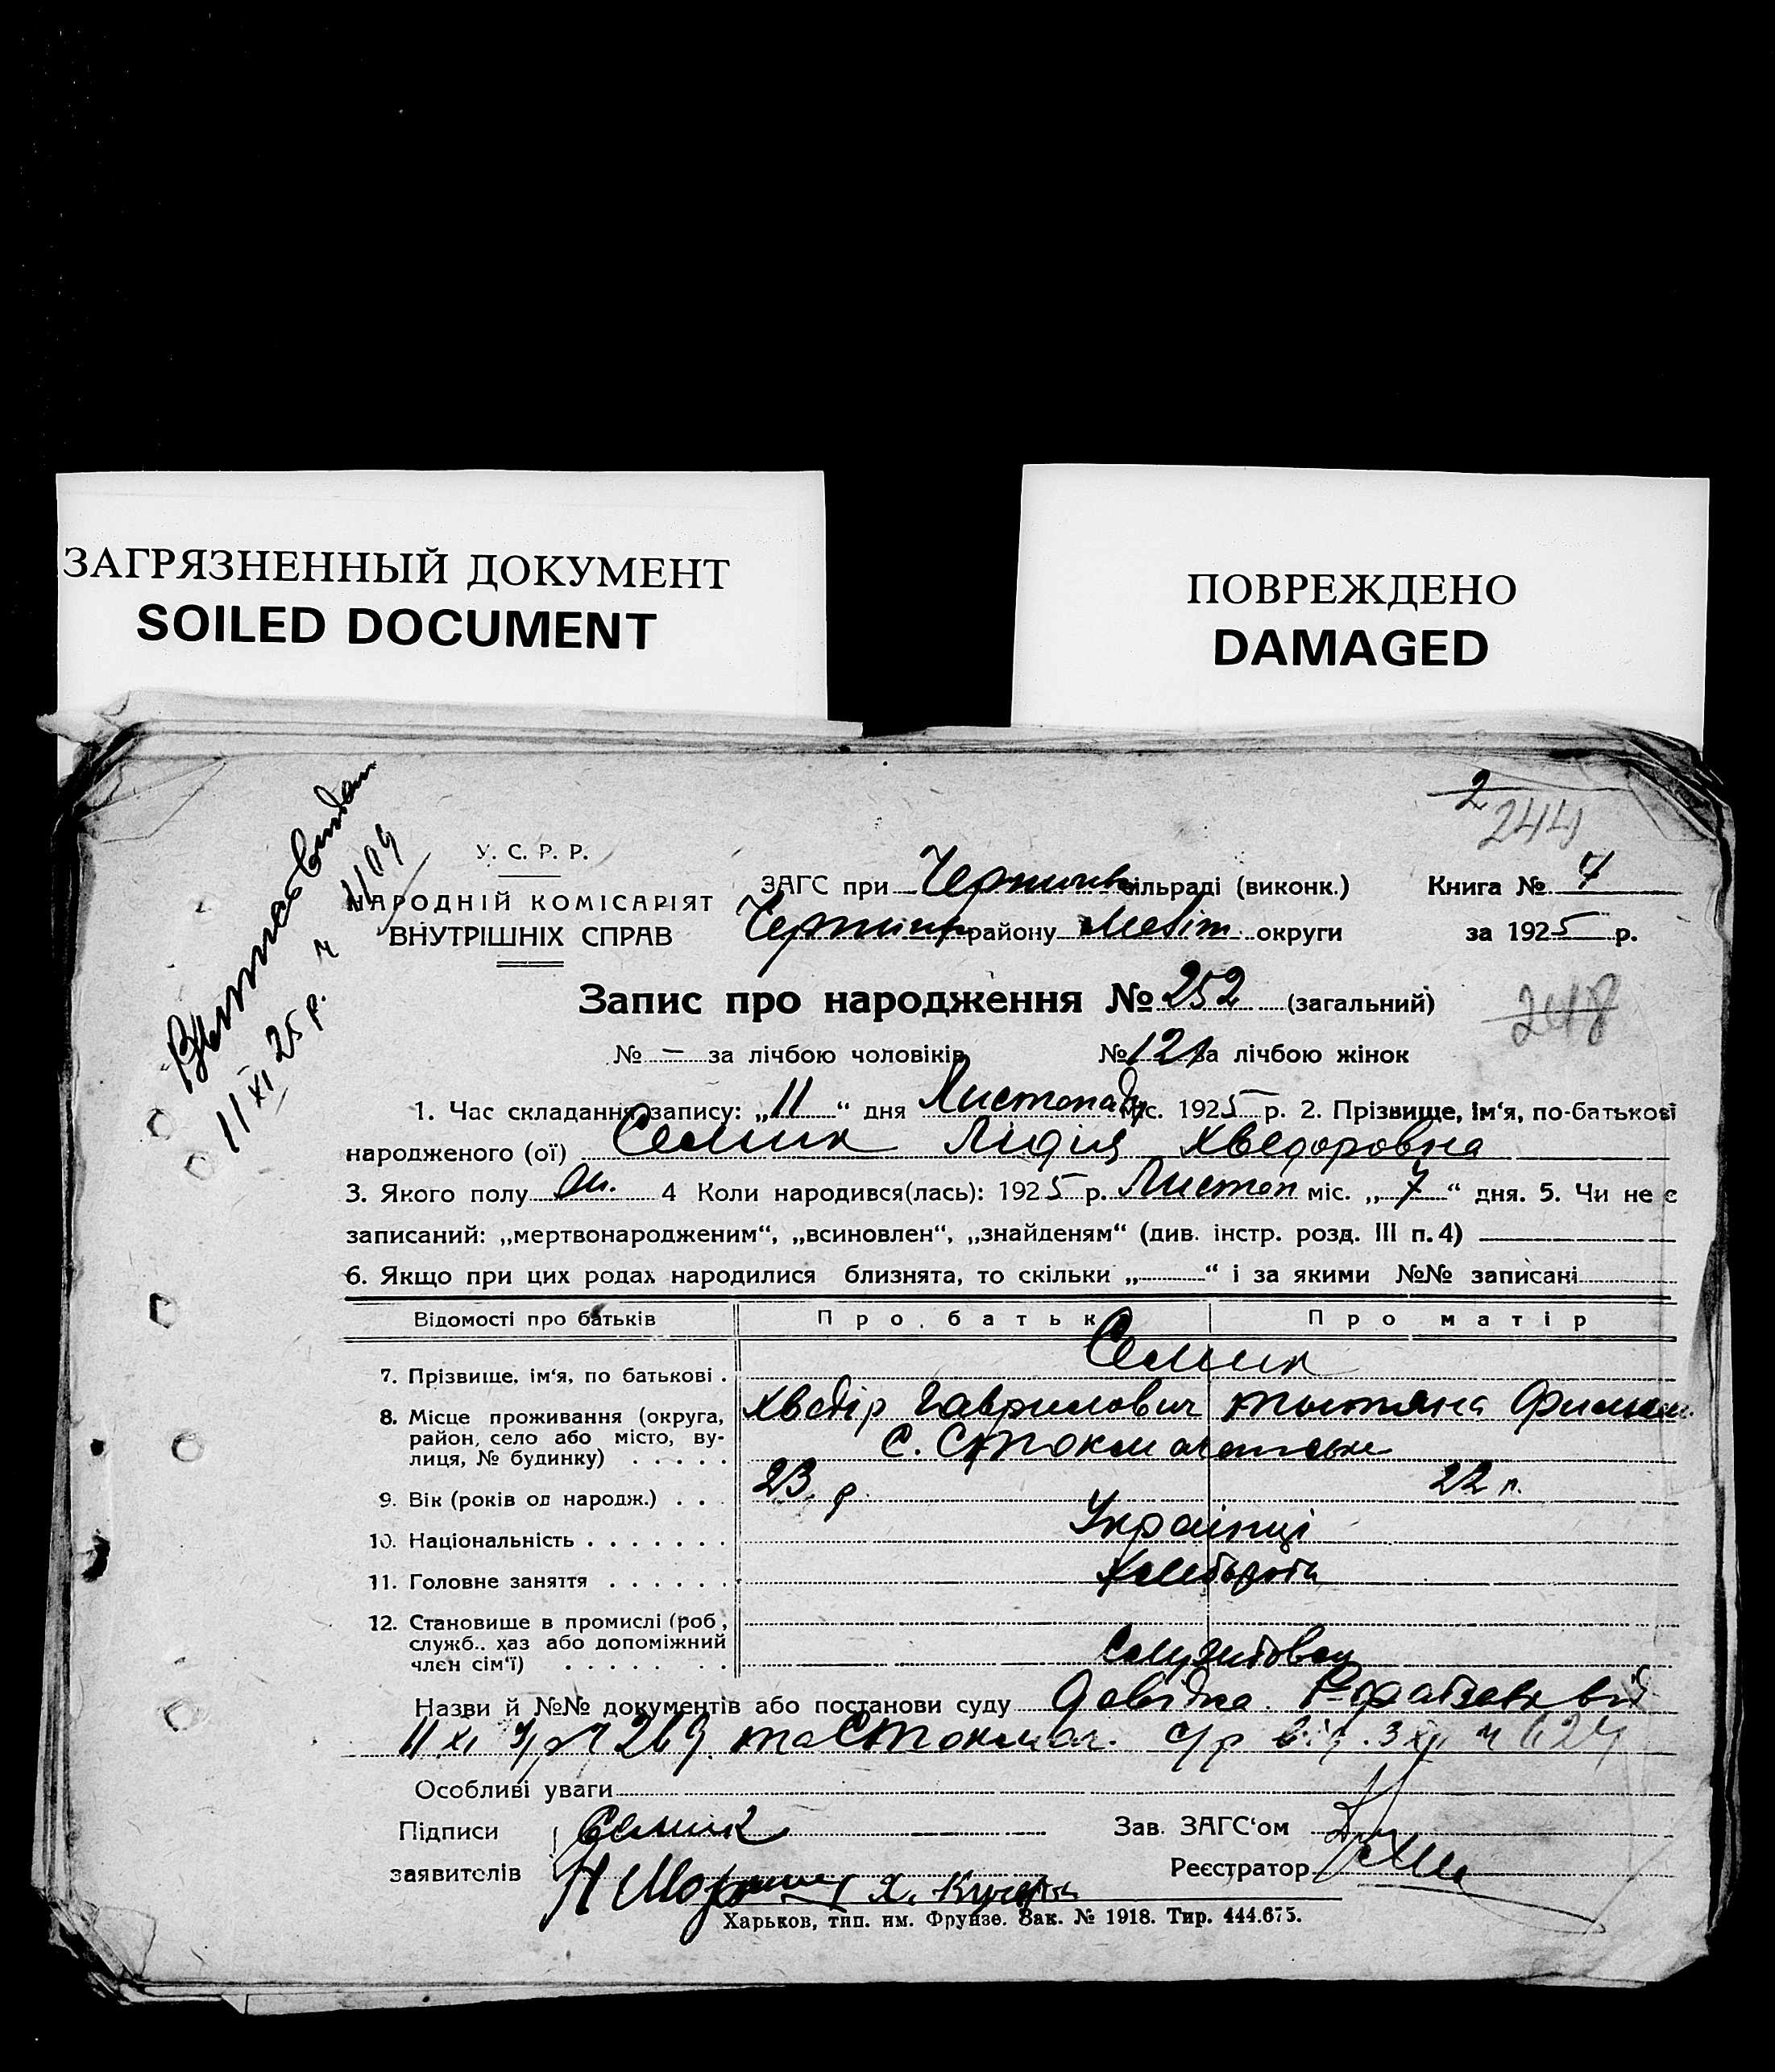 ЗАГРЯЗНЕННЫЙ ДОКУМЕНТ
SOILED DOCUMENT
ПОВРЕЖДЕНО
DAMAGED
2
244
11 XI 25 р.
У. С. Р. Р.
НАРОДНІЙ КОМІСАРІЯТ
ВНУТРІШНІХ СПРАВ
ЗАГС при сільраді (виконк.)
району Меліт. округи
Книга № 7
за 1925 р.
Запис про народження № 252 (загальний)
248
№ – за лічбою чоловіків № 121 за лічбою жінок
1. Час складання запису: „11“ дня Листопаду міс. 1925 р. 2. Прізвище, ім‘я, по-батькові
народженого (ої) Семик Лідія Хведоровна
3. Якого полу 4 Коли народився(лась): 1925 р. Листоп міс. „7“ дня. 5. Чи не є
записаний: „мертвонародженим“, „всиновлен“, „знайденям“ (див. інстр. розд. III п. 4)
6. Якщо при цих родах народилися близнята, то скільки „ “ і за якими №№ записані
Відомості про батьків Про батьк Про матір
7. Прізвище, ім‘я, по батькові . Семик
8. Місце проживання (округа, Хведір Гаврилович Тытяна
район, село або місто, ву- с.
лиця, № будинку) . . . . .
9. Вік (років од народж.) . . . 23 р 22 р.
10. Національність . . . . . . . Українці
11. Головне заняття . . . . . . Хлібороби
12. Становище в промислі (роб,
служб.. хаз або допоміжний
член сім‘ї) . . . . . . .
Назви й №№ документів або постанови суду Довідка
11 XI
Особливі уваги
Підписи Семик Зав. ЗАГС‘ом
заявителів Реєстратор
Харьков, тип. им. Фрунзе. Зак. № 1918. Тир. 444.675.